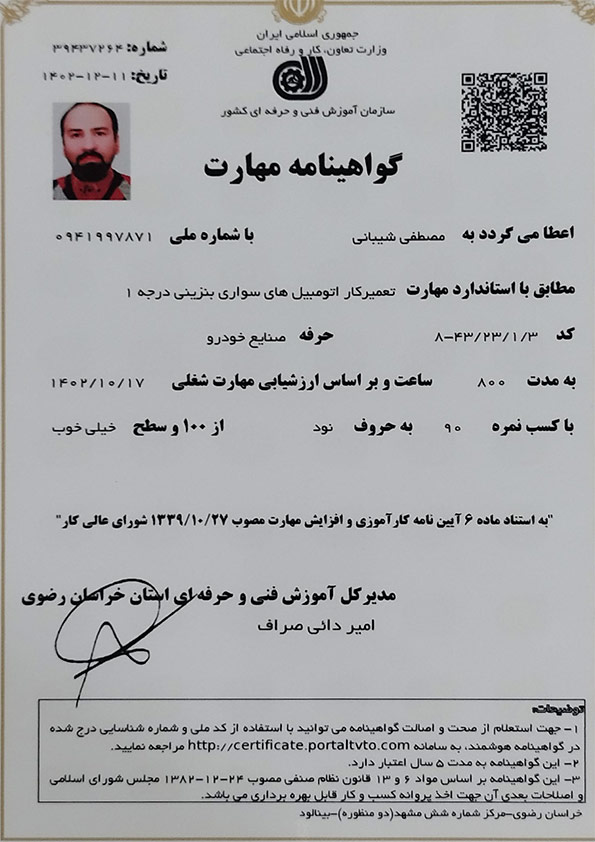 جمهوری اسلامی ایران
وزارت تعاون، کار و رفاه اجتماعی
سازمان آموزش فنی و حرفه ای کشور
شماره: ۳۹۴۳۷۲۶۴
تاریخ: ۱۴۰۲-۱۲-۱۱
گواهینامه مهارت
اعطا می گردد به مصطفی شیبانی با شماره ملی ۰۹۴۱۹۹۷۸۷۱
مطابق با استاندارد مهارت تعمیرکار اتومبیل های سواری بنزینی درجه ۱
کد ۸-۴۳/۲۳/۱/۳ حرفه صنایع خودرو
به مدت ۸۰۰ ساعت و بر اساس ارزشیابی مهارت شغلی ۱۴۰۲/۱۰/۱۷
با کسب نمره ۹۰ به حروف نود از ۱۰۰ و سطح خیلی خوب
"به استناد ماده ۶ آیین نامه کارآموزی و افزایش مهارت مصوب ۱۳۳۹/۱۰/۲۷ شورای عالی کار"
مدیرکل آموزش فنی و حرفه ای استان خراسان رضوی
امیر دائی صراف
توضیحات:
۱- جهت استعلام از صحت و اصالت گواهینامه می توانید با استفاده از کد ملی و شماره شناسایی درج شده
در گواهینامه هوشمند، به سامانه http://certificate.portaltvto.com مراجعه نمایید.
۲- این گواهینامه به مدت ۵ سال اعتبار دارد.
۳- این گواهینامه بر اساس مواد ۶ و ۱۳ قانون نظام صنفی مصوب ۲۴-۱۲-۱۳۸۲ مجلس شورای اسلامی
و اصلاحات بعدی آن جهت اخذ پروانه کسب و کار قابل بهره برداری می باشد.
خراسان رضوی-مرکز شماره شش مشهد(دو منظوره)-بینالود